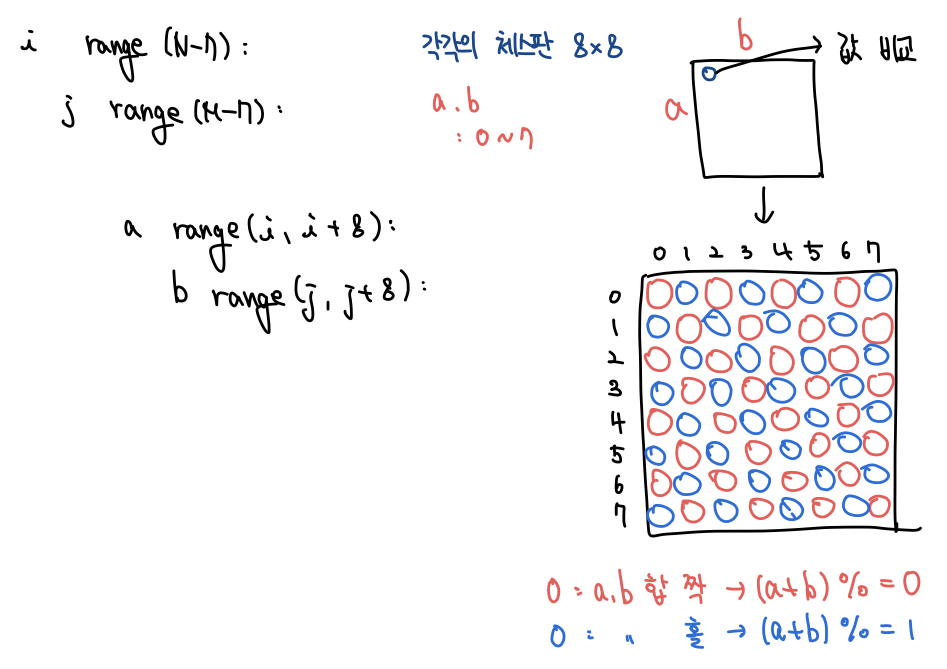 i range (N-7):
j range (M-7):
a range(i, i+8):
b range(j, j+8):
각각의 체스판 8×8
a.b
: 0~7
b
a
값 비교
0 1 2 3 4 5 6 7
0
1
2
3
4
5
6
7
O : a,b 합 짝 → (a+b) % = 0
O : 〃 홀 → (a+b) % = 1